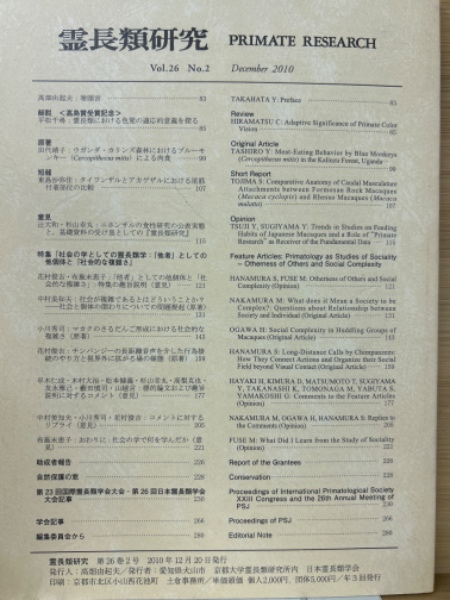 霊長類研究 PRIMATE RESEARCH
Vol.26 No.2 December 2010
高畑由起夫：巻頭言 83
総説 <高島賞受賞記念>
平松千尋：霊長類における色覚の適応的意義を探る 85
原著
田代靖子：ウガンダ・カリンズ森林におけるブルーモンキー (Cercopithecus mitis) による肉食 99
短報
東島沙弥佳：タイワンザルとアカゲザルにおける尾筋付着部位の比較 107
意見
辻大和・杉山幸丸：ニホンザルの食性研究の公表実態と、基礎資料の受け皿としての『霊長類研究』 115
特集「社会の学としての霊長類学：「他者」としての他個体と「社会的な複雑さ」
花村俊吉・布施未恵子：「他者」としての他個体と「社会的な複雑さ」：特集の趣旨説明（意見） 121
中村美知夫：社会が複雑であるとはどういうことか？
小川秀司：マカクのさるだんご形成における社会的な複雑さ（原著） 143
花村俊吉：チンパンジーの長距離音声を介した行為接続のやり方と視界外に拡がる場の様態（原著） 159
177
中村美知夫・小川秀司・花村俊吉：コメントに対するリプライ（意見） 205
布施未恵子：おわりに：社会の学で何を学んだか（意見） 221
助成者報告 226
自然保護の窓 228
第23回国際霊長類学会大会・第26回日本霊長類学会大会記事 230
学会記事 266
編集委員会から 280
TAKAHATA Y: Preface 83
Review
HIRAMATSU C: Adaptive Significance of Primate Color Vision 85
Original Article
TASHIRO Y: Meat-Eating Behavior by Blue Monkeys (Cercopithecus mitis) in the Kalinzu Forest, Uganda 99
Short Report
TOJIMA S: Comparative Anatomy of Caudal Musculature Attachments between Formosan Rock Macaques (Macaca cyclopis) and Rhesus Macaques (Macaca mulatta) 107
Opinion
TSUJI Y, SUGIYAMA Y: Trends in Studies on Feeding Habits of Japanese Macaques and a Role of "Primate Research" as Receiver of the Fundamental Data 115
Feature Articles: Primatology as Studies of Sociality – Otherness of Others and Social Complexity
HANAMURA S, FUSE M: Otherness of Others and Social Complexity (Opinion) 121
NAKAMURA M: What does it Mean a Society to be Complex?: Questions about Relationship between Society and Individual (Original Article) 131
OGAWA H: Social Complexity in Huddling Groups of Macaques (Original Article) 143
HANAMURA S: Long-Distance Calls by Chimpanzees: How They Connect Actions and Organize their Social Field beyond Visual Contact (Original Article) 159
HAYAKI H, KIMURA D, MATSUMOTO T, SUGIYAMA Y, TAKANASHI K, TOMONAGA M, YABUTA S, YAMAKOSHI G: Comments to the Feature Articles (Opinion) 177
NAKAMURA M, OGAWA H, HANAMURA S: Replies to the Comments (Opinion) 205
FUSE M: What Did I Learn from the Study of Sociality (Opinion) 221
Report of the Grantees 226
Conservation 228
Proceedings of International Primatological Society XXIII Congress and the 26th Annual Meeting of PSJ 230
Proceedings of PSJ 266
Editorial Note 280
霊長類研究 第26巻2号 2010年12月20日発行
発行人：高畑由起夫／発行者：愛知県犬山市 京都大学霊長類研究所内 日本霊長類学会
印刷：京都市北区小山西花池町 土倉事務所／年価購価 個人2,000円、団体5,000円／年3回発行